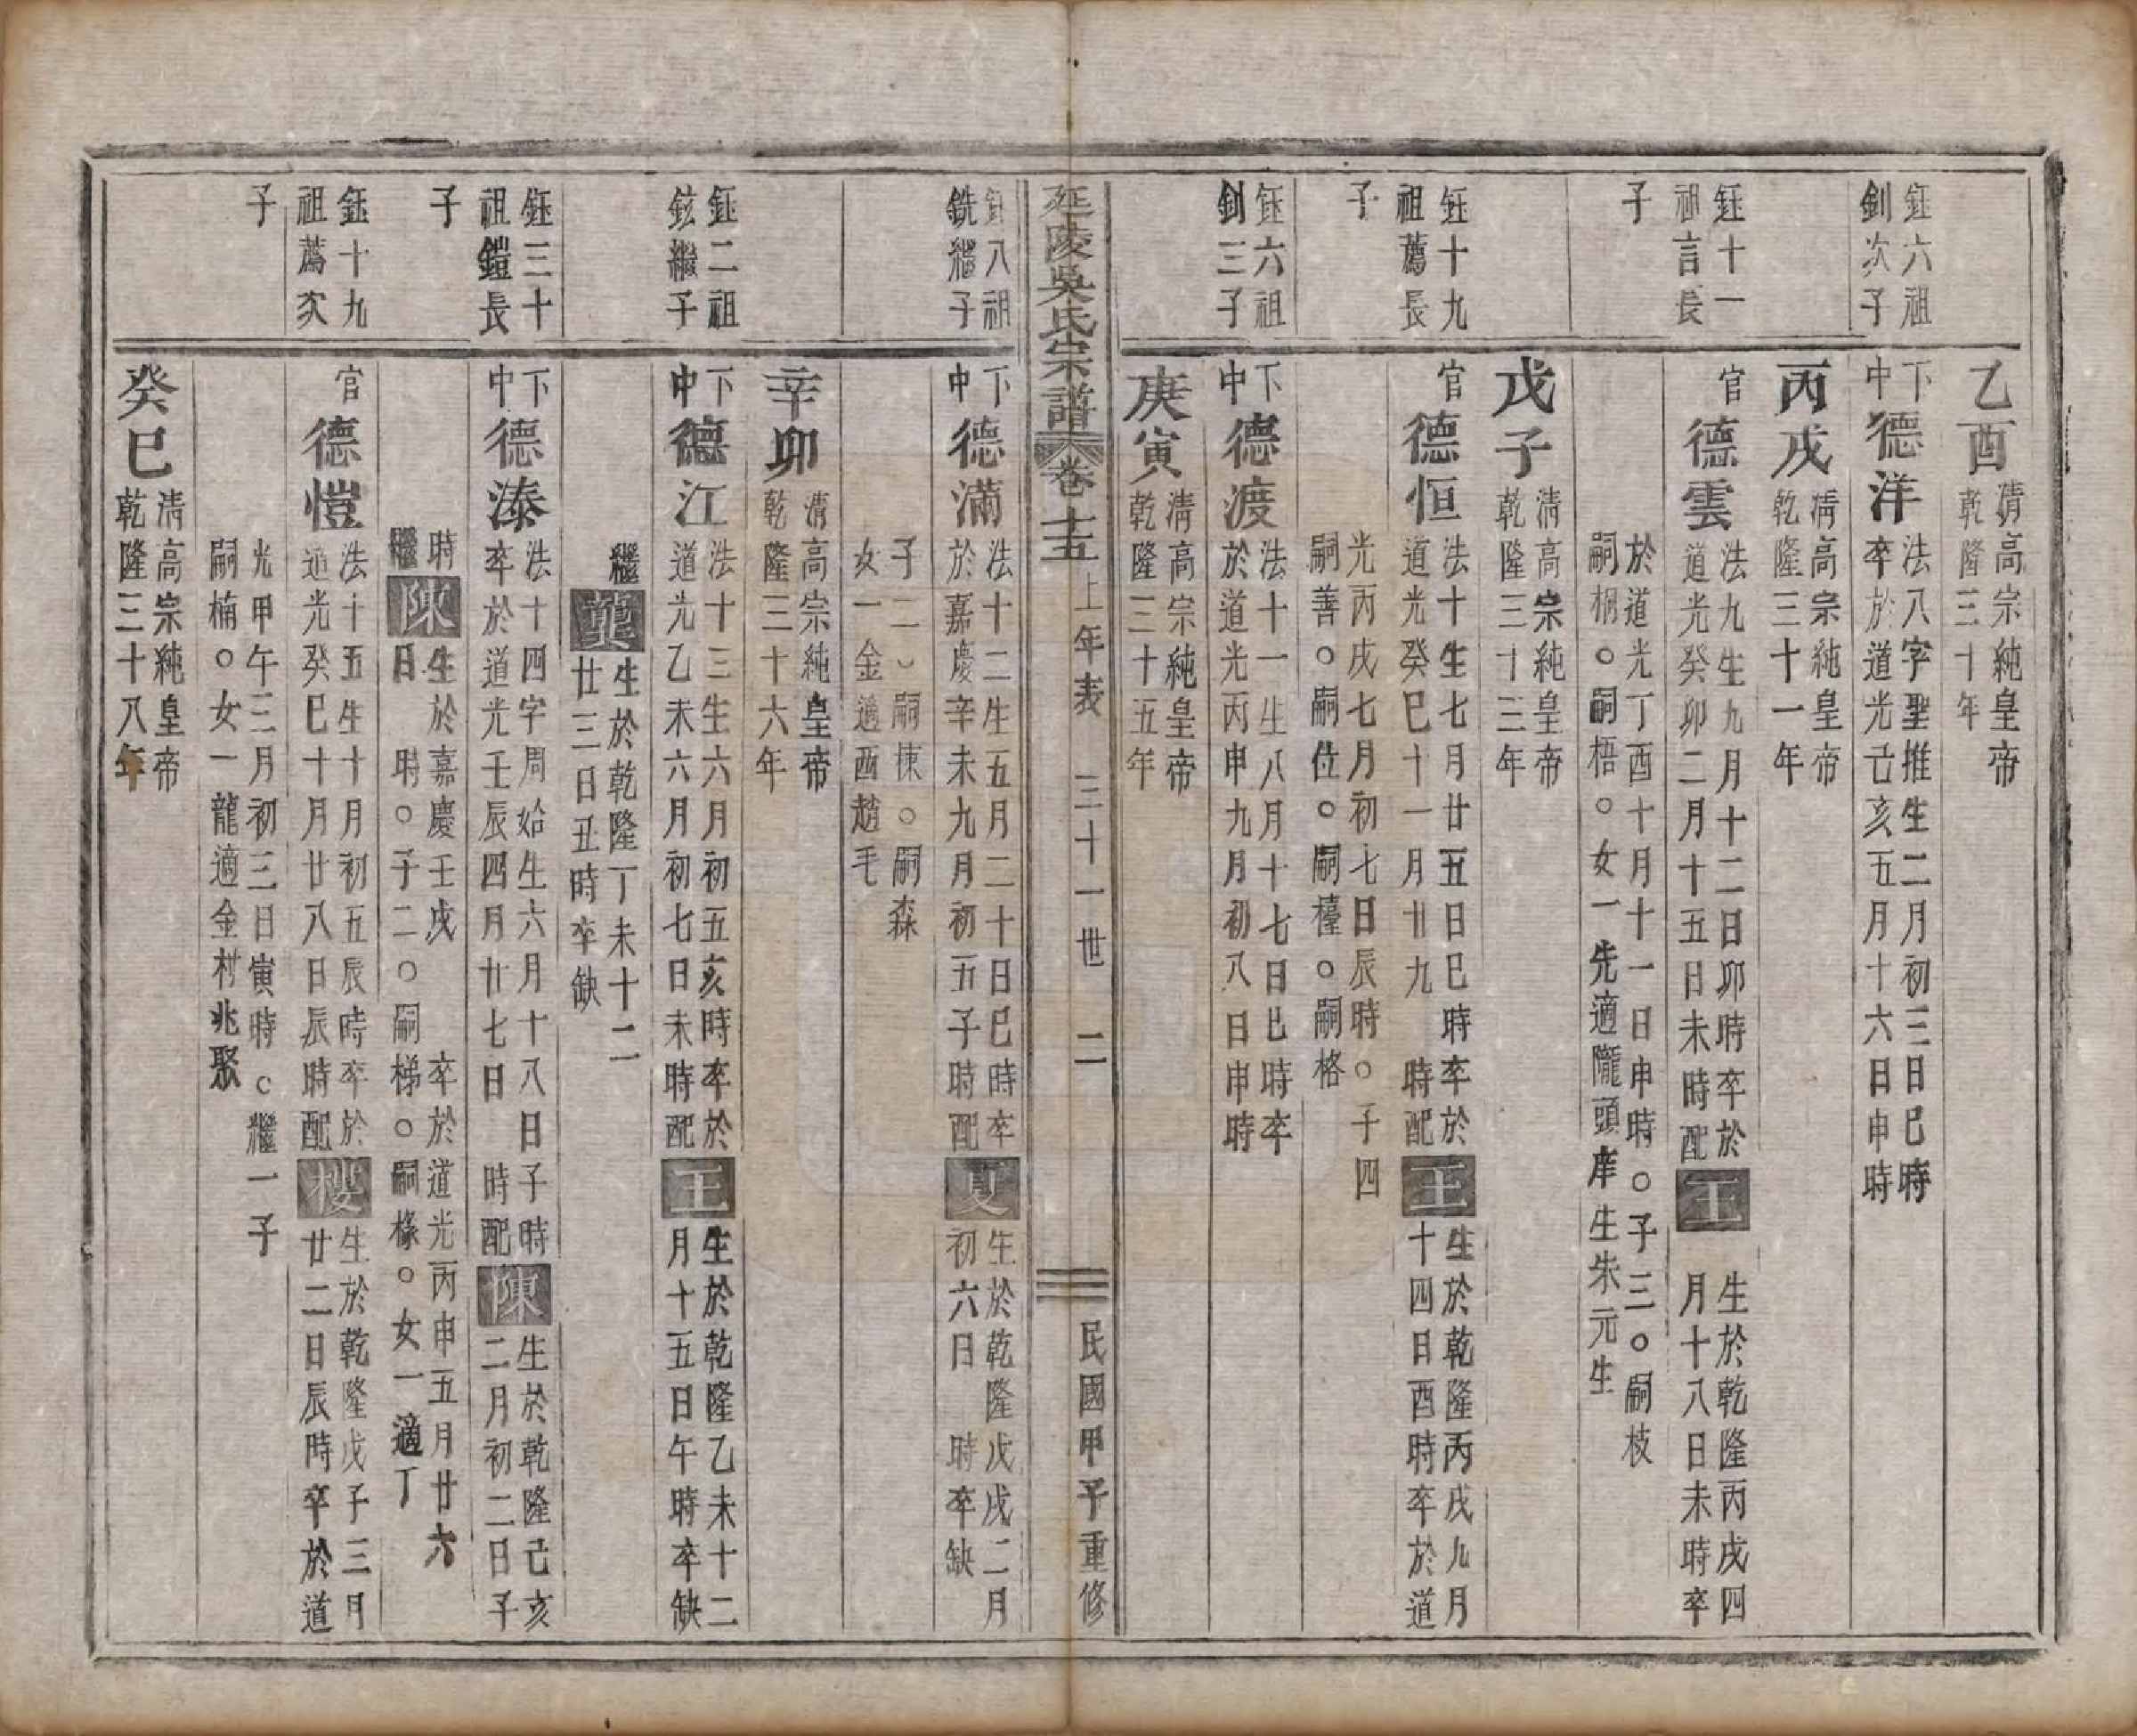 乙酉 清高宗純皇帝
乾隆三十年
鈺六祖
釗次子
下中 德洋 法八字聖推生二月初三日巳時
卒於道光亡亥五月十六日申時
丙戌 清高宗純皇帝
乾隆三十一年
鈺十一
祖言長
子
官 德雲 法九生九月十二日卯時卒於
道光癸卯二月十五日未時配
王 生於乾隆丙戌四
月十八日未時卒
於道光丁酉十月十一日申時○子三○嗣枝
嗣桐○嗣梧○女一先適隴頭庠生朱元生
戊子 清高宗純皇帝
乾隆三十三年
鈺十九
祖薦長
子
官 德恒 法十生七月廿五日巳時卒於
道光癸巳十一月廿九 時配
王 生於乾隆丙戌九月
十四日酉時卒於道
光丙戌七月初七日辰時○子四
嗣善○嗣位○嗣檯○嗣格
庚寅 清高宗純皇帝
乾隆三十五年
鈺六祖
釗三子
下中 德渡 法十一生八月十七日巳時卒
於道光丙申九月初八日申時
延陵吳氏宗譜 卷十五 上年表 三十一世 二 民國甲子重修
鈺八祖
銑繼子
下中 德滿 法十二生五月二十日巳時卒
於嘉慶辛未九月初五子時配
夏 生於乾隆戊戌二月
初六日 時卒缺
子二○嗣棟○嗣森
女一金適西趙毛
辛卯 清高宗純皇帝
乾隆三十六年
鈺二祖
鉉繼子
下中 德江 法十三生六月初五亥時卒於
道光乙未六月初七日未時配
王 生於乾隆乙未十二
月十五日午時卒缺
繼 龔 生於乾隆丁未十二
廿三日丑時卒缺
鈺三十
祖鎧長
子
下中 德溱 法十四字周始生六月十八日子時
卒於道光壬辰四月廿七日 時配
陳 生於乾隆己亥
二月初二日子
時
繼 陳 生於嘉慶壬戌 卒於道光丙申五月廿六
日 時○子二○嗣梯○嗣椽○女一適丁
鈺十九
祖薦次
子
官 德愷 法十五生十月初五辰時卒於
道光癸巳十月廿八日辰時配
樓 生於乾隆戊子三月
廿二日辰時卒於道
光甲午三月初三日寅時○繼一子
嗣楠○女一龍適金村兆聚
癸巳 清高宗純皇帝
乾隆三十八年